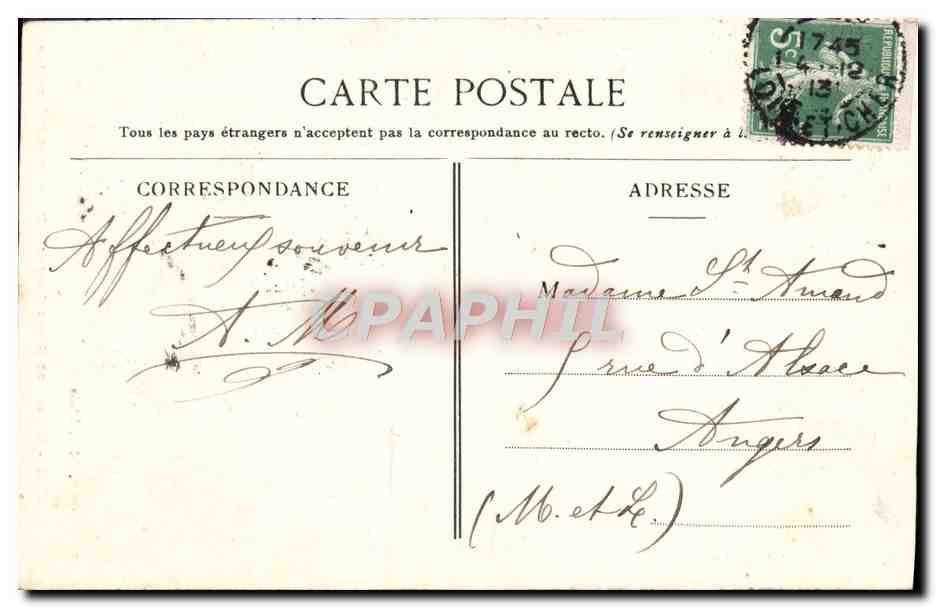 CARTE POSTALE
Tous les pays étrangers n'acceptent pas la correspondance au recto. (Se renseigner à l
CORRESPONDANCE
ADRESSE
Affectueux souvenir
A. M
Madame St Amand
5 rue d'Alsace
Angers
(M. et L.)
5c
REPUBLIQUE
1745
4 - 12
13
LOIR-ET-CHER
CPAPHIL